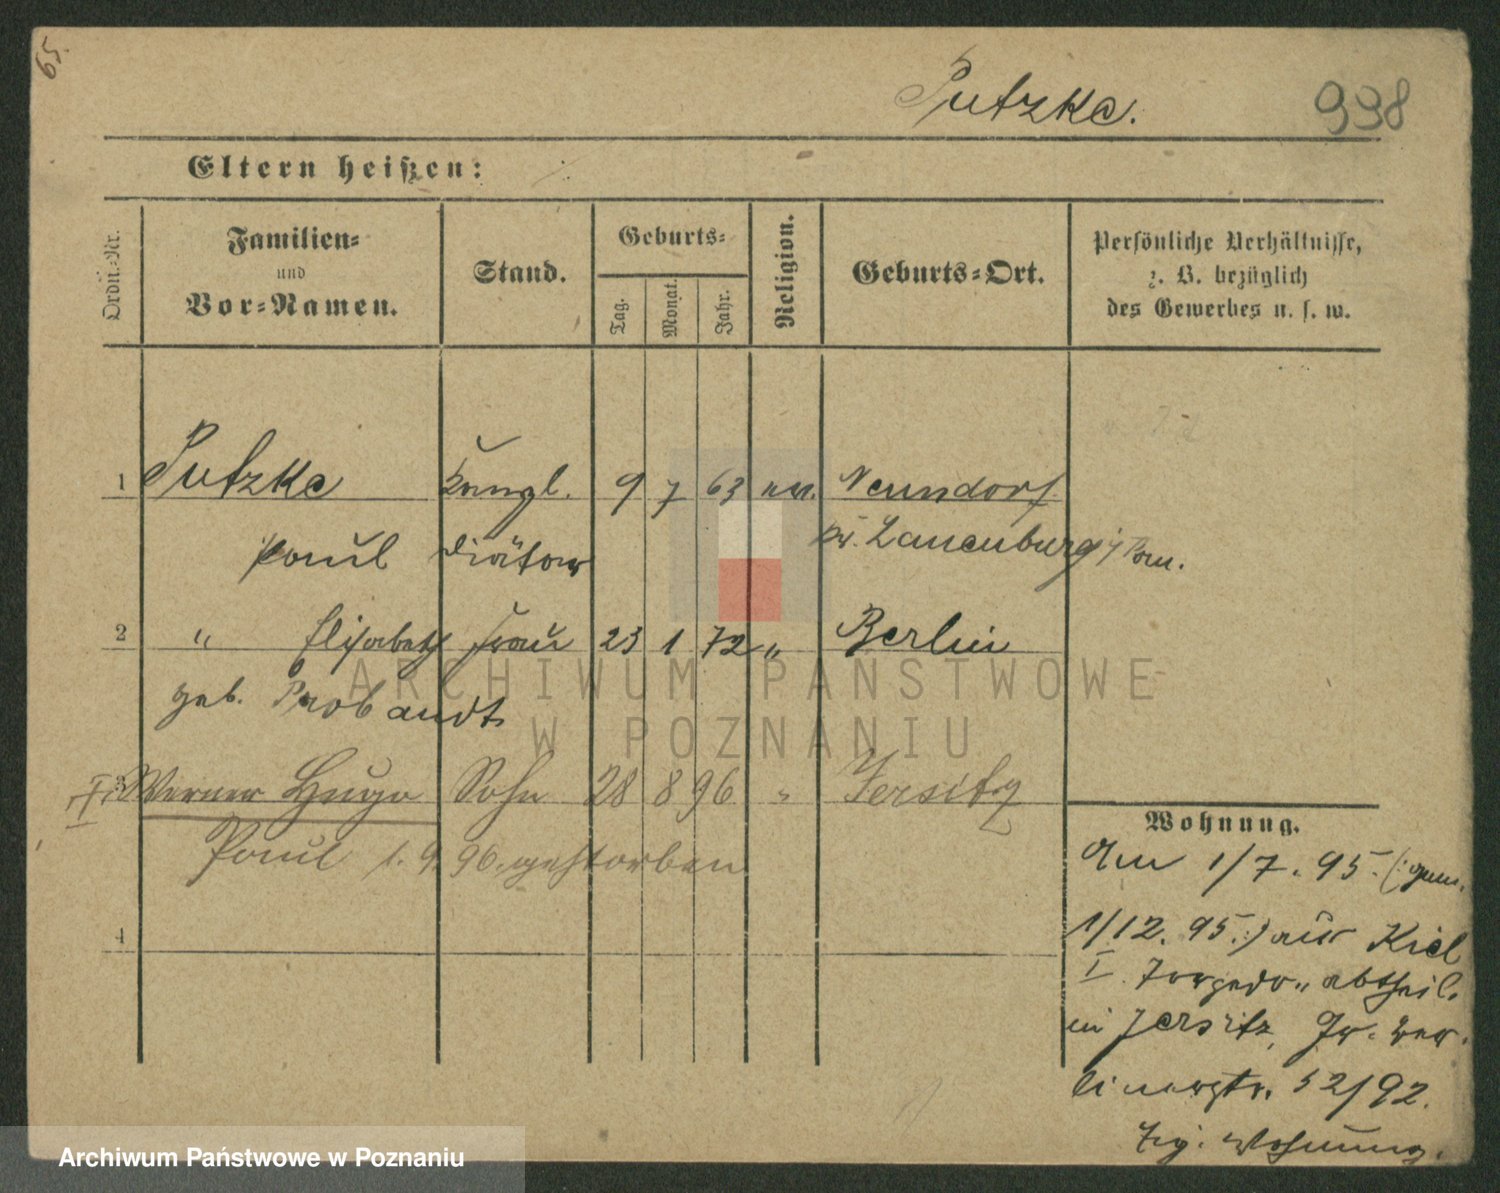 65.
Putzke.
998
Eltern heißen:
Ordn.-Nr.
Familien-
und
Vor-Namen.
Stand.
Geburts-
Tag.
Monat.
Jahr.
Religion.
Geburts-Ort.
Persönliche Verhältnisse,
z. B. bezüglich
des Gewerbes u. s. w.
1 Putzke Kanzl. 9 7 63 ev. Neuendorf
Paul Diätar Kr. Lauenburg i/Pom.
2 " Elisabeth Frau 23 1 72 " Berlin
geb. Probandt
3 Werner Hugo Sohn 28 8 96 " Jersitz
Paul 1.9.96. gestorben
4
Wohnung.
Am 1/7. 95. (: gem.
1/12. 95. :) aus Kiel
I. Torpedo-Abtheil.
in Jersitz, Gr. Ber-
linerstr. 52/92.
Archiwum Państwowe
w Poznaniu
Archiwum Państwowe w Poznaniu